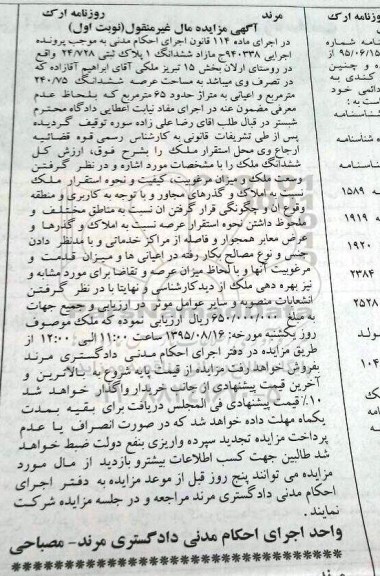 روزنامه ارک
مرند
روزنامه ارک
آگهی مزایده مال غیرمنقول(نوبت اول)
در اجرای ماده ۱۱۴ قانون اجرای احکام مدنی به موجب پرونده
اجرایی ۹۴۰۳۳۸ج مازاد ششدانگ ۱ پلاک ثبتی ۲۴/۷۲۸ واقع
در روستای ارلان بخش ۱۵ تبریز ملکی آقای ابراهیم آقازاده که
در تصرف وی میباشد به مساحت عرصه ششدانگ ۲۴۰/۷۵
مترمربع و اعیانی به متراژ حدود ۶۵ مترمربع که بلحاظ عدم
معرفی مضمون عنه در اجرای مفاد نیابت اعطایی دادگاه محترم
شبستر در قبال طلب اقای رضا علی زاده سوره توقیف گردیده
پس از طی تشریفات قانونی به کارشناس رسمی قوه قضائیه
ارجاع وی محل استقرار ملک را بشرح فوق، ارزش کل
ششدانگ ملک را با مشخصات مورد اشاره و در نظر گرفتن
وسعت ملک و میزان مرغوبیت، کیفیت و نحوه استقرار ملک
نسبت به املاک و گذرهای مجاور و با توجه به کاربری و منطقه
وقوع ان و چگونگی قرار گرفتن ان نسبت به مناطق مختلف و
ملحوظ داشتن نحوه استقرار عرصه نسبت به املاک و گذرها و
عرض معابر همجوار و فاصله از مراکز خدماتی و با مدنظر دادن
جنس و نوع مصالح بکار رفته در اعیانی ها و میزان قدمت و
مرغوبیت آنها و با لحاظ میزان عرصه و تقاضا برای مورد مشابه و
نیز بهره دهی ملک از دید کارشناسی و نهایتا با در نظر گرفتن
انشعابات منصوبه و سایر عوامل موثر در ارزیابی و جمیع جهات
به مبلغ ۶۵۰/۰۰۰/۰۰۰ ریال ارزیابی نموده که ملک موصوف
روز یکشنبه مورخه: ۱۳۹۵/۰۸/۱۶ ساعت ۱۱:۰۰ الی ۱۲:۰۰ از
طریق مزایده در دفتر اجرای احکام مدنی دادگستری مرند
بفروش خواهد رفت مزایده از قیمت پایه شروع به بالاترین و
آخرین قیمت پیشنهادی از جانب خریدار واگذار خواهد شد
۱۰٪ قیمت پیشنهادی فی المجلس دریافت برای بقیه بمدت
یکماه مهلت داده خواهد شد که در صورت انصراف یا عدم
پرداخت مزایده تجدید سپرده واریزی بنفع دولت ضبط خواهد
شد طالبین جهت کسب اطلاعات بیشترو بازدید از مال مورد
مزایده می توانند پنج روز قبل از موعد مزایده به دفتر اجرای
احکام مدنی دادگستری مرند مراجعه و در جلسه مزایده شرکت
نمایند.
واحد اجرای احکام مدنی دادگستری مرند- مصباحی
نامه شماره
۹۵/۰۶/۱۵
و چنین
کندی به
دائمی خود
است به:
شناسنامه
شناسنامه
۱۵۸۹
۱۹۱۹
۱۹۲۰
۲۳۸۴
۲۵۲۸